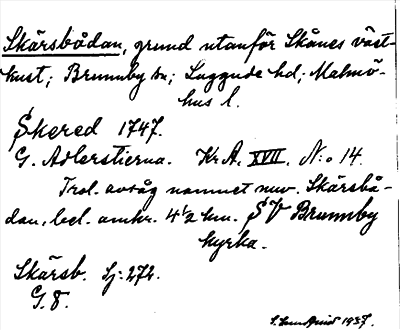 Skärsbådan, grund utanför Skånes väst-
kust; Brunnby sn; Luggude hd; Malmö-
hus l.
Skered 1747.
G. Adlerstierna. Kr. A. XVII. N:o 14.
Trol. avsåg namnet nuv. Skärsbå-
dan, bel. omkr. 4 1/2 km. SV Brunnby
kyrka.
Skärsb. Sj: 272.
G. 8.
1937.